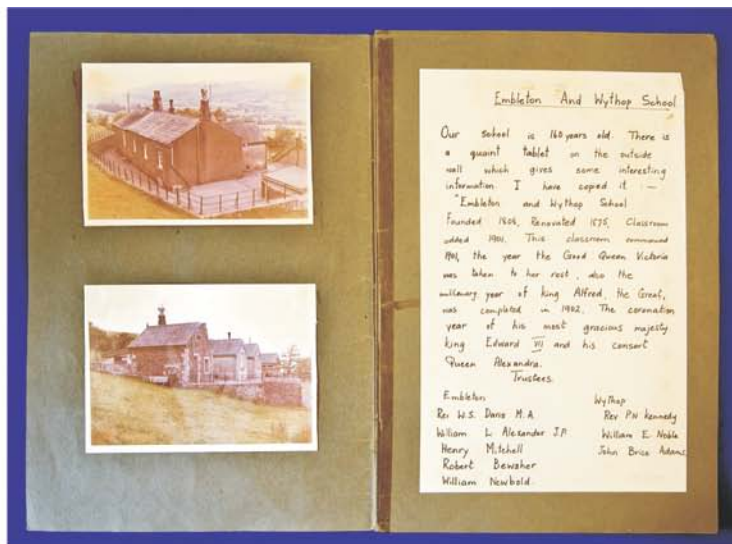 Embleton And Wythop School
Our school is 160 years old. There is
a quaint tablet on the outside
wall which gives some interesting
information. I have copied it :—
"Embleton and Wythop School
Founded 1806, Renovated 1875, Classroom
added 1901. This classroom commenced
1901, the year the Good Queen Victoria
was taken to her rest, also the
millenary year of king Alfred, the Great,
was completed in 1902. The coronation
year of his most gracious majesty
king Edward VII and his consort
Queen Alexandra.
Trustees.
Embleton Wythop
Rev W.S. Dans M.A. Rev P.H Kennedy
William L Alexander J.P. William E Noble
Henry Mitchell John Brice Adams
Robert Bewsher
William Newbold.